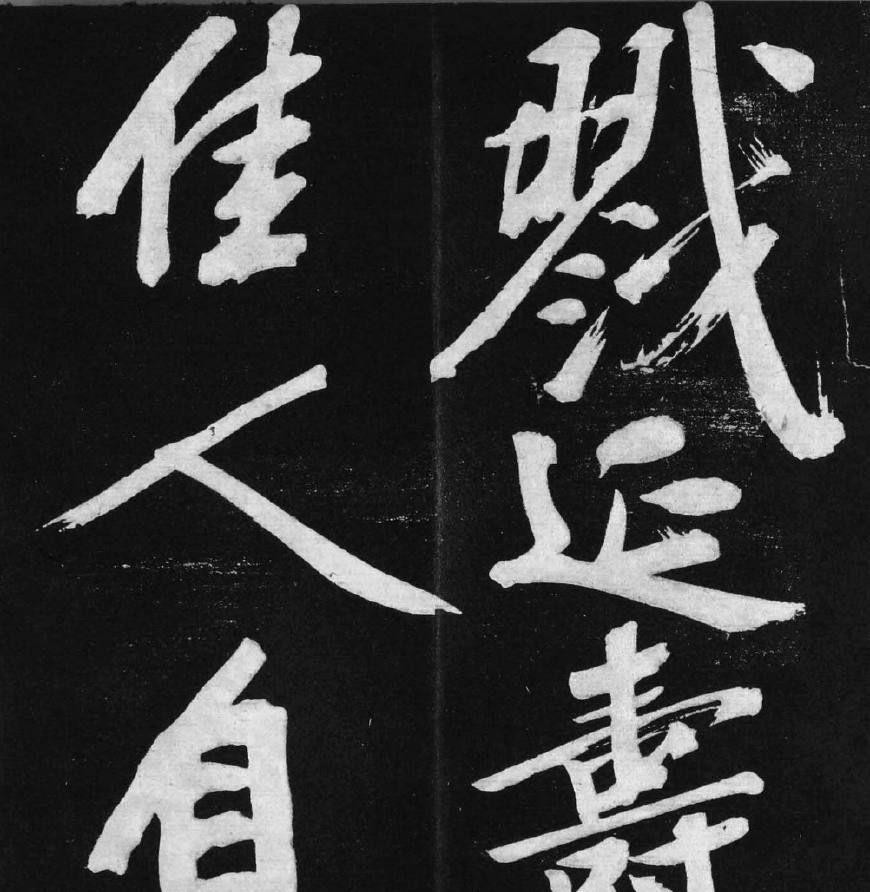 戮延壽
佳人自